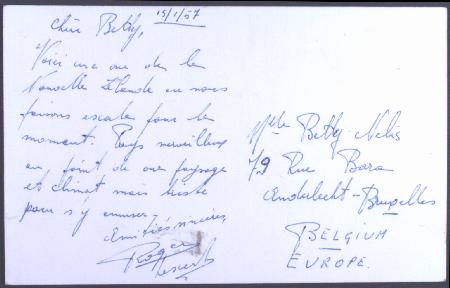 15/1/57
Chère Betty,
Voici une vue de la
Nouvelle Zélande où nous
faisons escale pour le
moment. Pays merveilleux
au point de vue paysage
et climat mais triste
pour s'y amuser.
Amitiés sincères,
Roger
Mlle Betty Nelis
79 Rue Bara
Anderlecht-Bruxelles
BELGIUM
EUROPE.